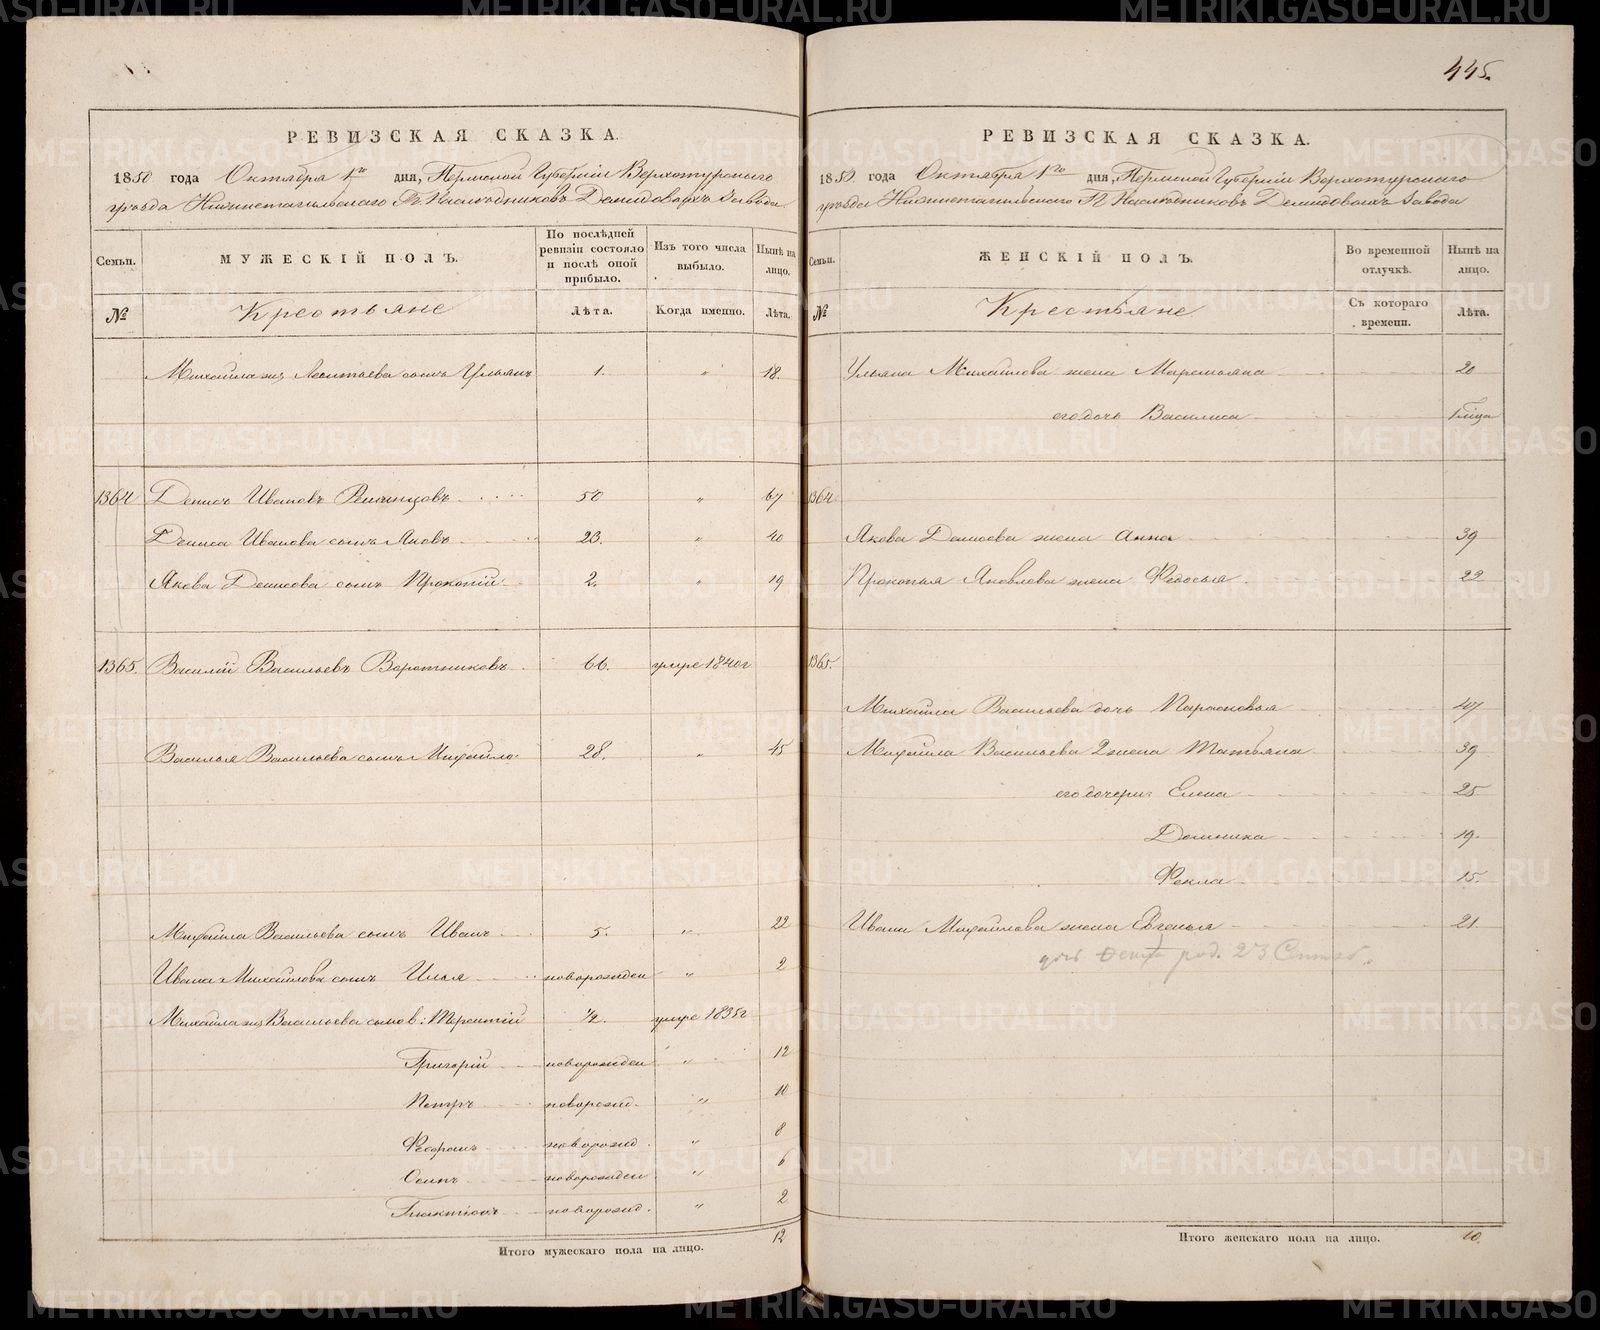 445.
РЕВИЗСКАЯ СКАЗКА.
1850 года Октября 1го дня, Пермской Губернiи Верхотурскаго
уѣзда Нижнетагильскаго Гг. Наслѣдниковъ Демидовыхъ Завода
Семьи. МУЖЕСКIЙ ПОЛЪ. По послѣдней ревизiи состояло и послѣ оной прибыло. Изъ того числа выбыло. Нынѣ на лицо.
№ Крестьяне Лѣта. Когда именно. Лѣта.
Михайла Леонтьева сынъ Ульянъ 1. " 18.
1364 Денисъ Ивановъ 50 " 67
Дениса Иванова сынъ Яковъ 23. " 40
Якова Денисова сынъ Прокопiй 2. " 19
1365. Василiй Васильевъ Воротниковъ 66. умре 1840г
Василья Васильева сынъ Михайло 28. " 45
Михайла Васильева сынъ Иванъ 5. " 22
Ивана Михайлова сынъ Илья новорожден " 2
Михайла Васильева сынов: Терентiй 1/2. умре 1835г
Григорiй новорожден " 12
Петръ новорожд. " 10
новорожд. " 8
Осипъ новорожден " 6
новорожд. " 2
Итого мужескаго пола на лицо. 12
РЕВИЗСКАЯ СКАЗКА.
1850 года Октября 1го дня, Пермской Губернiи Верхотурскаго
уѣзда Нижнетагильскаго Гг. Наслѣдниковъ Демидовыхъ Завода
Семьи. ЖЕНСКIЙ ПОЛЪ. Во временной отлучкѣ. Нынѣ на лицо.
№ Крестьяне Съ котораго времени. Лѣта.
Ульяна Михайлова жена Маремьяна 20
его дочь Василиса
1364
Якова Денисова жена Анна 39
Прокопья Яковлева жена Федосья 22
1365.
Михайла Васильева дочь Парасковья
Михайла Васильева 2 жена Татьяна 39
его дочери: Елена 25
Домника 19.
Фекла 15.
Ивана Михайлова жена Евгенья 21
дочь род. 23 Сентяб.
Итого женскаго пола на лицо. 10.
METRIKI.GASO-URAL.RU